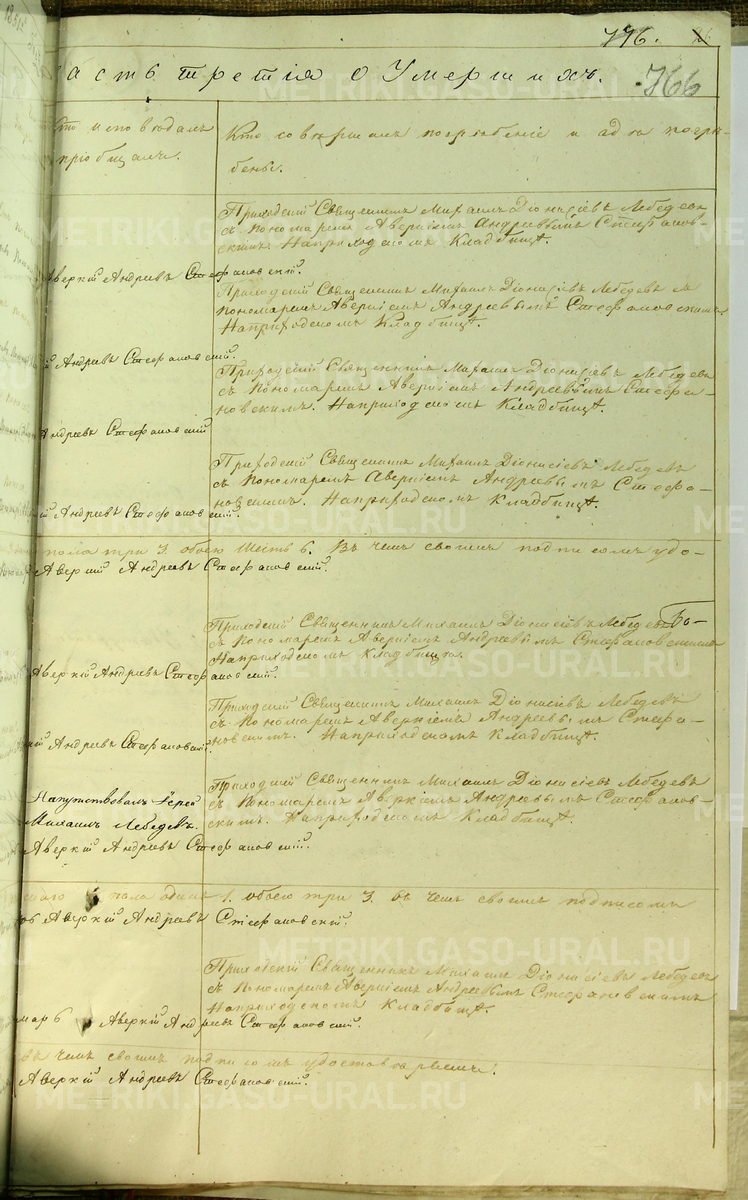 796.
асть третія о Умершихъ.
766
Кто исповѣдалъ
пріобщалъ.
Кто совершалъ погребеніе и гдѣ погре-
бены.
Приходскій Священникъ Михаилъ Діонисіевъ Лебедевъ
съ Пономаремъ Аверкіемъ Андреевымъ Стефанов-
скимъ. На приходскомъ Кладбищѣ.
Аверкій Андреевъ Стефановскій.
Приходскій Священникъ Михаилъ Діонисіевъ Лебедевъ съ
пономаремъ Аверкіемъ Андреевымъ Стефановскимъ
На приходскомъ Кладбищѣ.
й Андреевъ Стефановскій.
Приходскій Священникъ Михаилъ Діонисіевъ Лебедевъ
съ Пономаремъ Аверкіемъ Андреевымъ Стефа-
новскимъ. На приходскомъ Кладбищѣ.
Андреевъ Стефановскій
Приходскій Священникъ Михаилъ Діонисіевъ Лебедевъ
съ Пономаремъ Аверкіемъ Андреевымъ Стефа-
новскимъ. На приходскомъ Кладбищѣ.
ій Андреевъ Стефановскій.
пола три 3. обоего шесть 6. Въ чемъ своимъ подписомъ удо-
Аверкій Андреевъ Стефановскій.
Приходскій Священникъ Михаилъ Діонисіевъ Лебедевъ
съ Пономаремъ Аверкіемъ Андреевымъ Стефановскимъ
На приходскомъ Кладбищѣ.
Аверкій Андреевъ Стефановскій.
Приходскій Священникъ Михаилъ Діонисіевъ Лебедевъ
съ Пономаремъ Аверкіемъ Андреевымъ Стефа-
новскимъ. На приходскомъ Кладбищѣ.
кій Андреевъ Стефановскій.
Напутствовалъ Іерей
Михаилъ Лебедевъ.
Приходскій Священникъ Михаилъ Діонисіевъ Лебедевъ
съ Пономаремъ Аверкіемъ Андреевымъ Стефанов-
скимъ. На приходскомъ Кладбищѣ.
Аверкій Андреевъ Стефановскій.
пола одинъ 1. обоего три 3. въ чемъ своимъ подписомъ
Аверкій Андреевъ Стефановскій.
Приходскій Священникъ Михаилъ Діонисіевъ Лебедевъ
съ Пономаремъ Аверкіемъ Андреевымъ Стефановскимъ
На приходскомъ Кладбищѣ.
марь Аверкій Андреевъ Стефановскій.
въ чемъ своимъ подписомъ удостовѣряемъ.
Аверкій Андреевъ Стефановскій.
METRIKI.GASO-URAL.RU